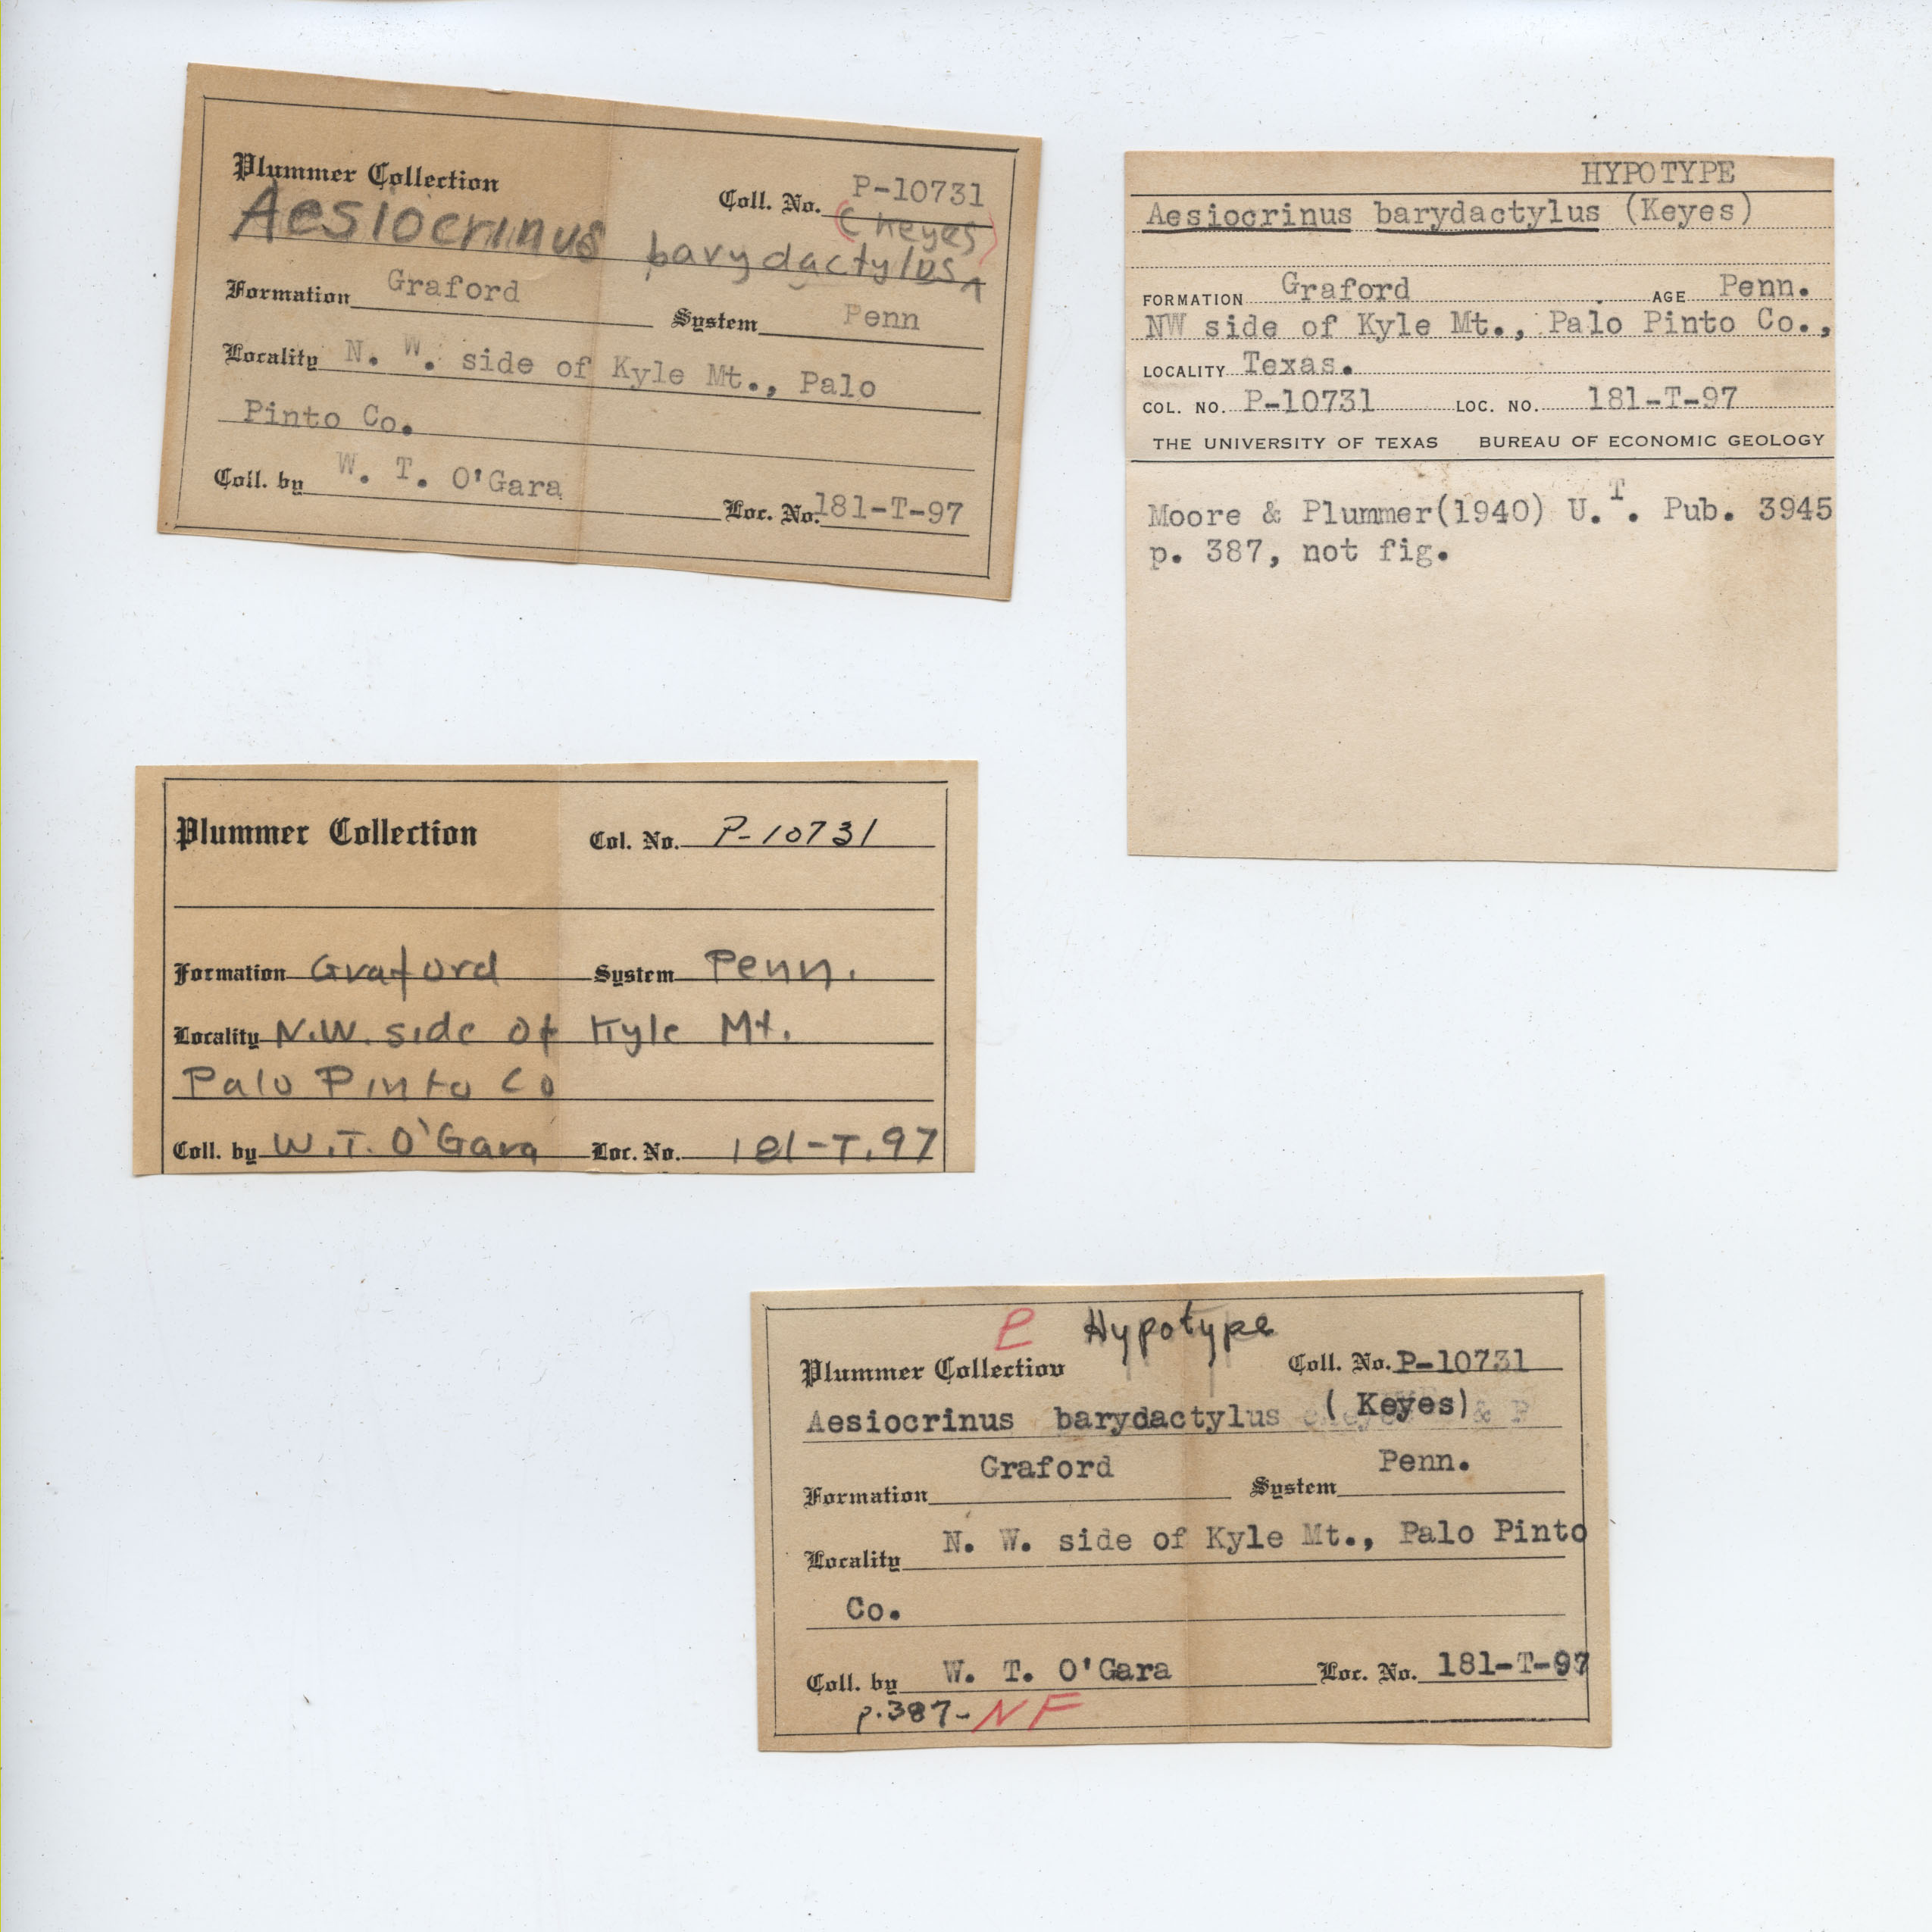 Plummer Collection
Coll. No. P-10731
Aesiocrinus barydactylus (Keyes)
Formation Graford System Penn
Locality N. W. side of Kyle Mt., Palo
Pinto Co.
Coll. by W. T. O'Gara Loc. No. 181-T-97
HYPOTYPE
Aesiocrinus barydactylus (Keyes)
FORMATION Graford AGE Penn.
NW side of Kyle Mt., Palo Pinto Co.,
LOCALITY Texas.
COL. NO. P-10731 LOC. NO. 181-T-97
THE UNIVERSITY OF TEXAS BUREAU OF ECONOMIC GEOLOGY
Moore & Plummer(1940) U.T. Pub. 3945
p. 387, not fig.
Plummer Collection Col. No. P-10731
Formation Graford System Penn.
Locality N.W. side of Kyle Mt.
Palo Pinto Co
Coll. by W.T. O'Gara Loc. No. 181-T.97
P Hypotype
Plummer Collection Coll. No. P-10731
Aesiocrinus barydactylus (Keyes) & P
Formation Graford System Penn.
Locality N. W. side of Kyle Mt., Palo Pinto
Co.
Coll. by W. T. O'Gara Loc. No. 181-T-97
p.387- NF